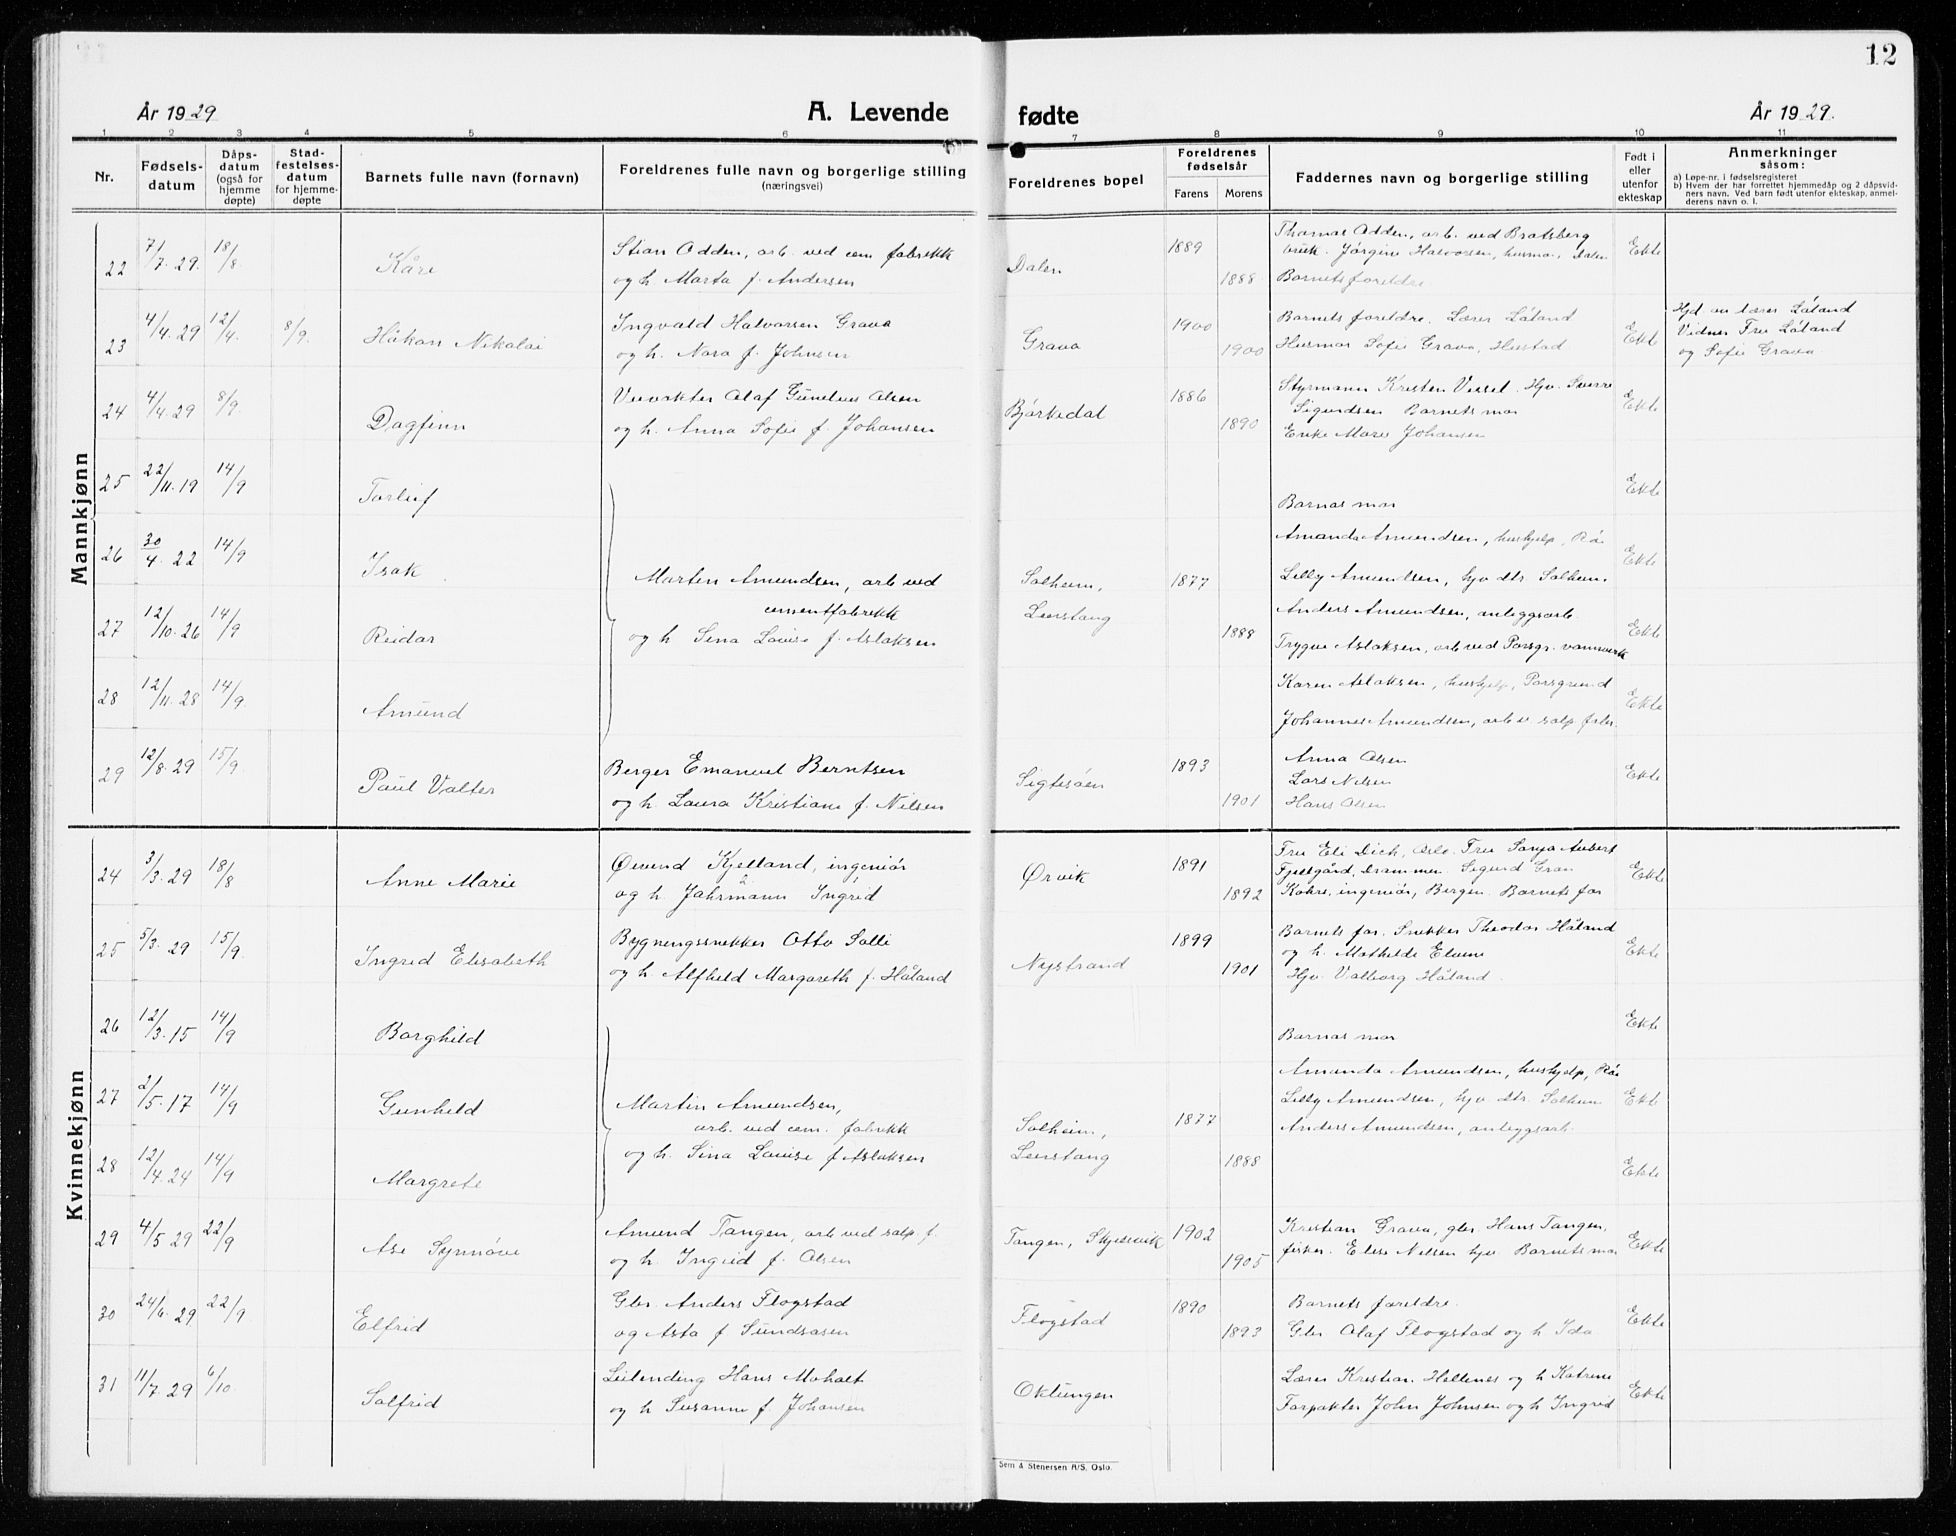 12
År 1929
A. Levende fødte
År 1929.
1 2 3 4 5 6 7 8 9 10 11
Nr.
Fødsels-datum
Dåps-datum (også for hjemme døpte)
Stad-festelses-datum for hjemme-døpte
Barnets fulle navn (fornavn)
Foreldrenes fulle navn og borgerlige stilling (næringsvei)
Foreldrenes bopel
Foreldrenes fødselsår
Farens Morens
Faddernes navn og borgerlige stilling
Født i eller utenfor ekteskap
Anmerkninger
såsom:
a) Løpe-nr. i fødselsregisteret
b) Hvem der har forrettet hjemmedåp og 2 dåpsvidners navn. Ved barn født utenfor ekteskap, anmelderens navn o. l.
Mannkjønn
22 7/7. 29. 18/8. Kåre
Stian Odden, arb. ved cem fabrekk
og h. Marta f. Andersen
Dalen 1889 1888
Thomas Odden, arb. ved Bratsberg
bruk. Jørgine Halvorsen, husmor, Dalen
Barnets foreldre
Ekte
23 4/4. 29 12/4. 8/9. Håkon Nikolai
Ingvald Halvorsen Grava
og h. Nora f. Johnsen
Grava 1900 1900
Barnets foreldre. Lærer Låland
Husmor Sofie Grava, Hustad
Ekte
Hjd av lærer Låland
Vidner Fru Låland
og Sofie Grava
24 4/4. 29 8/9. Dagfinn
Veivokter Olaf Gunelius Olsen
og h. Anna Sofie f. Johansen
Bjørkedal 1886 1890
Styrmann Kristen Vessel. Hjv. Sverre
Sigurdsen Barnets mor
Enke Marie Johansen
Ekte
25 22/11. 19 14/9 Torleif
Barnas mor
Ekte
26 30/4. 22 14/9 Isak
Amanda Amundsen, hushjelp, Rå
Lilly Amundsen, hjv dtr. Solheim.
Ekte
Martin Amundsen, arb ved
cementfabrekk
og h Sina Louise f. Aslaksen
Solheim,
Leerstang
1877 1888
27 12/10. 26 14/9 Reidar
Anders Amundsen, anleggsarb.
Trygve Aslaksen, arb ved Porsgr. vannverk
Ekte
28 12/11. 28 14/9. Amund
Karen Aslaksen, hushjelp, Porsgrund
Johannes Amundsen, arb v. salp. fabr.
Ekte
29 12/8. 29 15/9. Paul Valter
Berger Emanuel Berntsen
og h. Laura Kristiane f. Nilsen
Sigtesøen 1893 1901
Anna Olsen
Lars Nilsen
Hans Olsen
Ekte
Kvinnekjønn
24 3/3. 29 18/8 Anne Marie
Øivind Kjelland, ingeniør
og h. Jahrmann Ingrid
Ørvik 1891 1892
Fru Eli Dich, Oslo. Fru Sonja Aubert
Fjellgård, Drammen. Sigurd Gran
Kahrs, ingeniør, Bergen. Barnets far
Ekte
25 5/3. 29 15/9. Ingrid Elisabeth
Bygningssnekker Otto Solli
og h. Alfhild Margareth f. Håland
Nystrand 1899 1901
Barnets far. Snekker Theodor Håland
og h. Mathilde Elvine
Hjv. Valborg Håland.
Ekte
26 12/3. 15 14/9 Borghild
Barnas mor
Ekte
27 2/5. 17 14/9 Gunhild
Martin Amundsen,
arb. ved cem. fabrekk
og h. Sina Louise f Aslaksen
Solheim,
Leerstang
1877 1888
Amanda Amundsen, hushjelp, Rå
Lilly Amundsen, hjv. dtr. Solheim
Anders Amundsen, anleggsarb.
Ekte
28 12/4. 24 14/9 Margrete
Ekte
29 4/5 29 22/9 Åse Synnøve
Amund Tangen, arb ved salp. f.
og h. Ingrid f. Olsen
Tangen, Skjelsvik 1902 1905
Kristian Grava, gbr. Hans Tangen,
fisker. Elise Nilsen hjv. Barnets mor
Ekte
30 24/6. 29 22/9 Elfrid
Gbr. Anders Flogstad
og Asta f Sundsåsen
Flogstad 1890 1893
Barnets foreldre.
Gbr Olaf Flogstad og h Ida
Ekte
31 11/7. 29 6/10. Solfrid
Leilending Hans Moholt
og h Susanne f. Johansen
Oklungen
Lærer Kristian Hellenes og h Katrine
Forpakter John Johnsen og h Ingrid
Ekte
Sem & Stenersen A/S, Oslo.